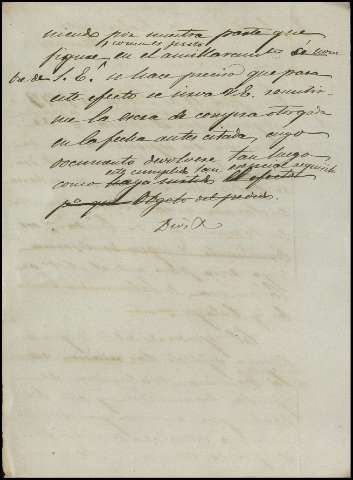 niendo por nuestra parte que
como es justo
figure en el amillaramto á nom
bre de S. E. se hace preciso que para
este efecto se sirva V.E. remitir
me la escra de compra otorgada
en la fecha antes citada, cuyo
documento devolveré tan luego
esté cumplido tan especial requisito
como haya surtido el efecto
por que objeto del pedido.
Dios &